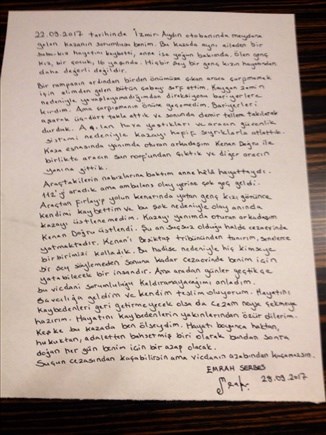 22.09.2017 tarihinde İzmir-Aydın otobanında meydana
gelen kazanın sorumlusu benim. Bu kazada aynı aileden bir
baba-kız hayatını kaybetti, anne ise yoğun bakımda. Ölen genç
kız, bir çocuk, 16 yaşında. Hiçbir şey bir genç kızın hayatından
daha değerli değildir.
Bir rampanın ardından birden önümüze çıkan araca çarpmamak
için elimden gelen bütün çabayı sarf ettim. Kaygan zemin
nedeniyle yavaşlayamadığımdan direksiyonu bariyerlere
kırdım. Ama çarpışmanın önüne geçemedim. Bariyerleri
aparak üç-dört takla attık ve sonunda demir tellere takılarak
durduk. Açılan hava yastıkları ve aracın güvenlik
sistemi nedeniyle kazayı hafif sıyrıklarla atlattık.
Kaza esnasında yanımda oturan arkadaşım Kenan Doğru ile
birlikte aracın san roofundan çıktık ve diğer aracın
yanına gittik.
Araçtakilerin nabızlarına baktım anne hâlâ hayattaydı.
112'yi aradık ama ambulans olay yerine çok geç geldi.
Araçtan fırlayıp yolun kenarında yatan genç kızı görünce
kendimi kaybettim ve bu şok nedeniyle olay anında
kazayı üstlenemedim. Kazayı yanımda oturan arkadaşım
Kenan Doğru üstlendi. Şu an suçsuz olduğu halde cezaevinde
yatmaktadır. Kenan'ı Beşiktaş tribününden tanırım, senelerce
birbirimizi kolladık. Bu hadise nedeniyle hiç kimseye
bir şey söylemeden sonuna kadar cezaevinde benim için
yatabilecek bir insandır. Ama aradan günler geçtikçe
bu vicdani sorumluluğu kaldıramayacağımı anladım.
Bu savcılığa geldim ve kendim teslim oluyorum. Hayatını
kaybedenleri geri getirmeyecek olsa da cezam neyse çekmeye
hazırım. Hayatını kaybedenlerin yakınlarından özür dilerim.
Keşke bu kazada ben ölseydim. Hayatı boyunca haktan,
hukuktan, adaletten bahsetmiş biri olarak bundan sonra
doğan her gün benim için bir azap olacak.
Suçun cezasından kaçabilirsin ama vicdanın azabından kaçamazsın.
EMRAH SERBES
28.09.2017